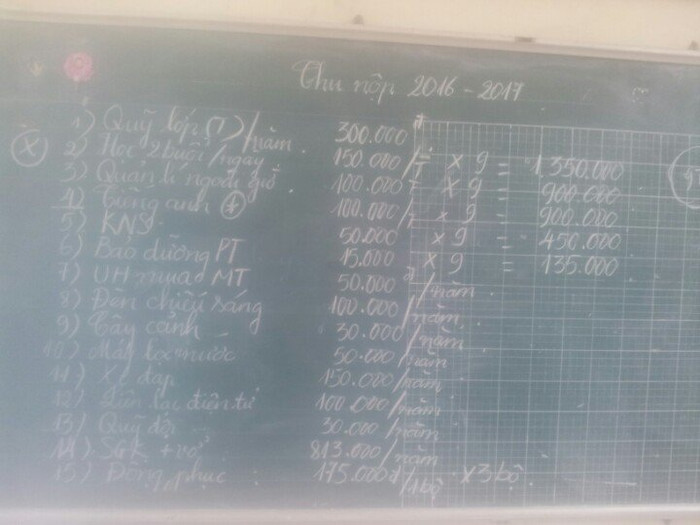 Thu nộp 2016 - 2017
1) Quỹ lớp /năm. 300.000đ
X 2) Học 2 buổi/ngày 150.000/T x 9 = 1.350.000
3) Quản lí ngoài giờ 100.000 x 9 = 900.000
4) Tiếng anh 4 100.000/T x 9 = 900.000
5) KNS 50.000 x 9 = 450.000
6) Bảo dưỡng PT 15.000 x 9 = 135.000
7) UH mua MT 50.000đ/năm.
8) Đèn chiếu sáng 100.000/năm.
9) Cây cảnh 30.000/năm
10) Máy lọc nước 50.000/năm
11) Xe đạp 150.000/năm
12) liên lạc điện tử 100.000/năm
13) Quỹ đội 30.000/năm
14) SGK + vở 813.000/năm
15) Đồng phục : 175.000đ/1bộ x3bộ